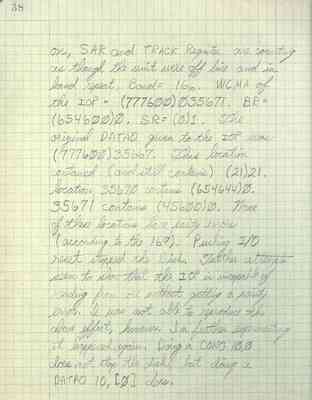 38
on, SAR and TRACK Register are counting
as though the unit were off line and in
band reset. Band = 16₈. WCMA of
the IOP = (777600)035671. BR=
(654600)0. SR= (0)1. The
original DATAO given to the IOP was
(777600)35667. This location
contained (and still contains) (21)21.
location 35670 contains (654644)0.
35671 contains (45600)0. None
of these locations have parity errors
(according to the 167). Pushing I/O
reset stopped the disk. Further attempts
seem to show that the IOP is incapable of
reading from without getting a parity
error. I was not able to reproduce the
above effect, however. In further experimenting
it happened again. Doing a CONO 10,0
does not stop the disk, but doing a
DATAO 10,[0] does.